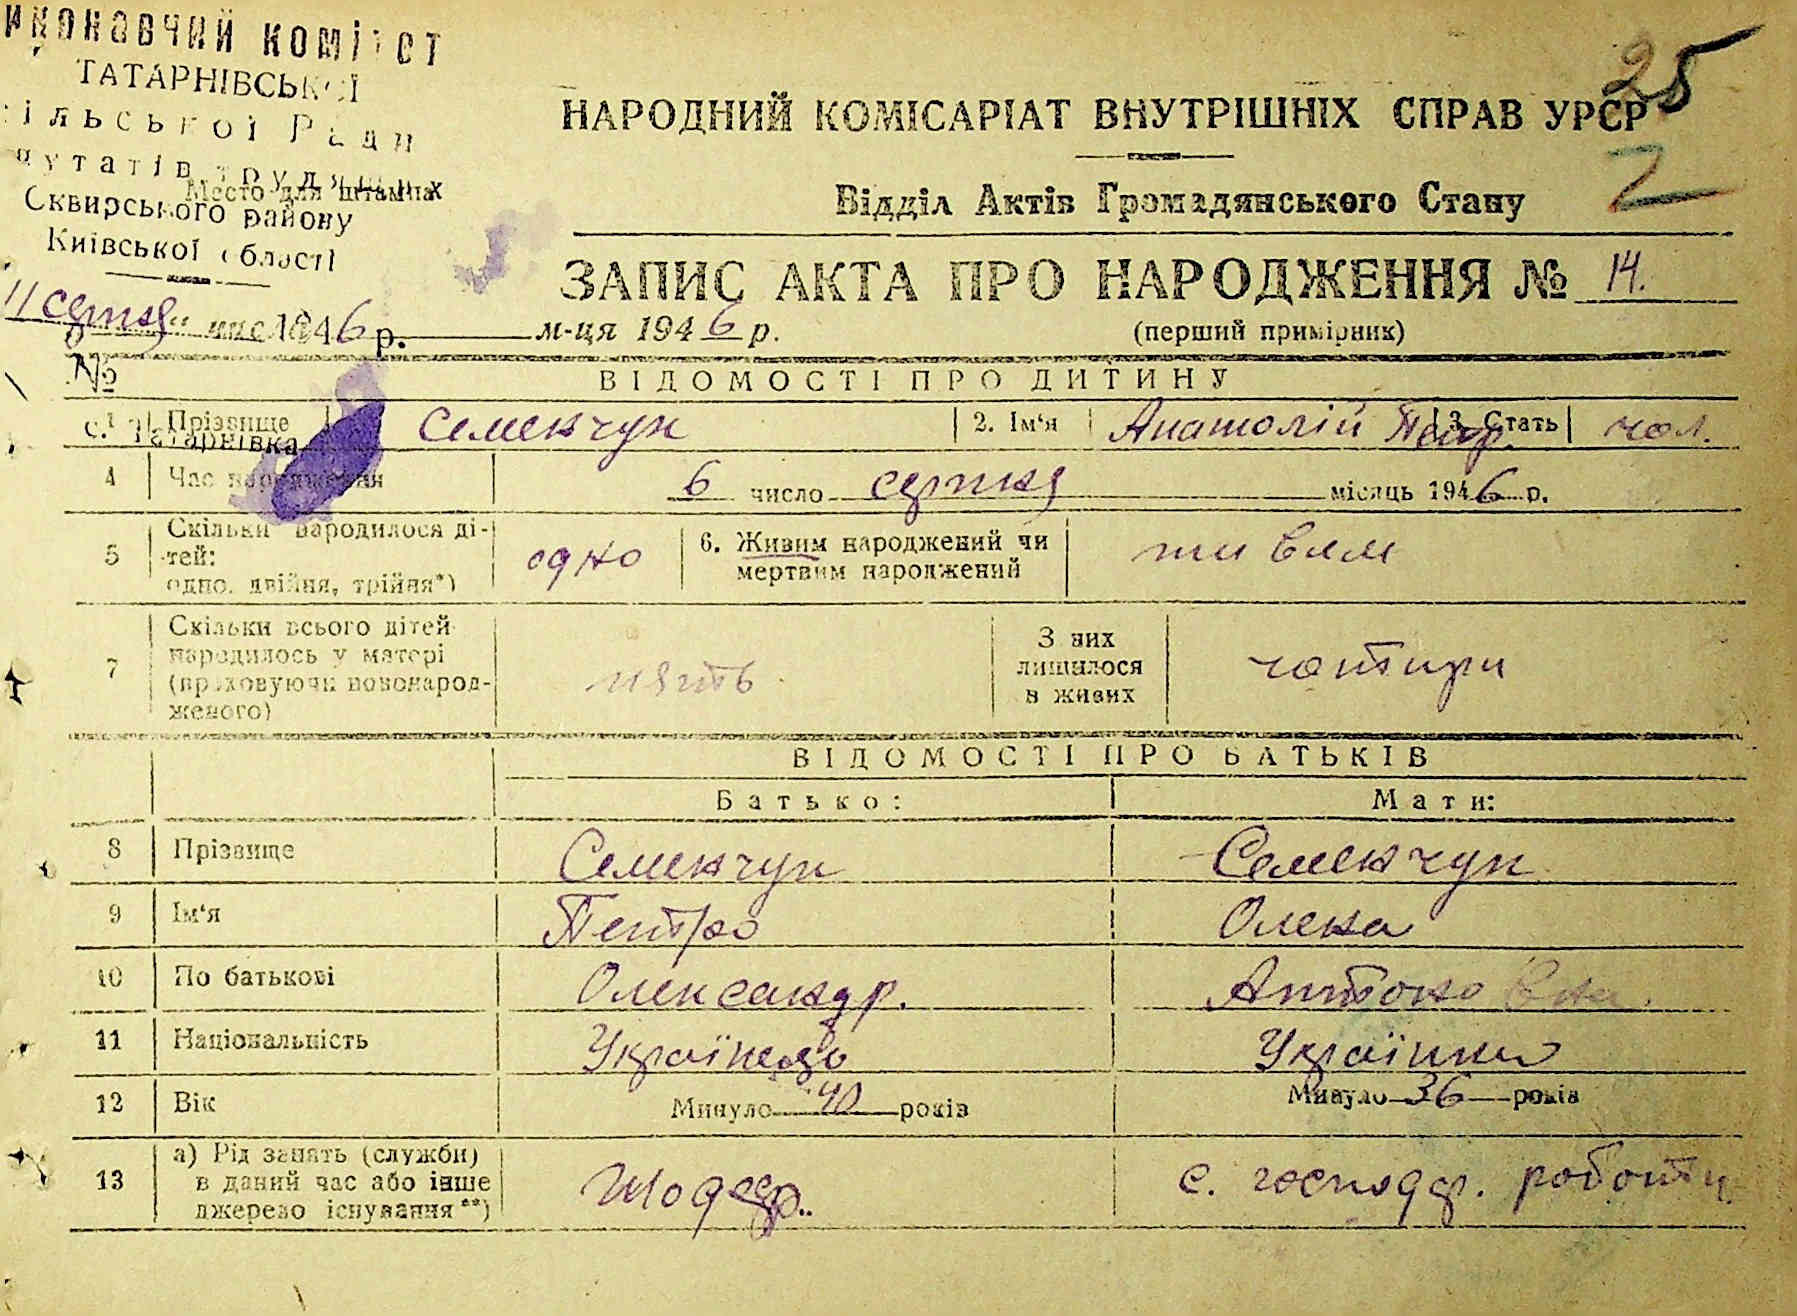 виконавчий комітет
ТАТАРНІВСЬКОЇ
сільської Ради
депутатів трудящих
Место для штампа
Сквирського району
Київської області
25
2
НАРОДНИЙ КОМІСАРІАТ ВНУТРІШНІХ СПРАВ УРСР
Відділ Актів Громадянського Стану
ЗАПИС АКТА ПРО НАРОДЖЕННЯ № 14.
(перший примірник)
11 серпня 1946 р. м-ця 1946 р.
№
с. Татарнівка
ВІДОМОСТІ ПРО ДИТИНУ
1 Прізвище Семенчук 2. Ім'я Анатолій Петр. 3. Стать чол.
4 Час народження 6 число серпня місяць 1946 р.
5 Скільки народилося ді-
тей:
одно, двійня, трійня*) одно 6. Живим народжений чи
мертвим народжений живим
7 Скільки всього дітей
народилось у матері
(враховуючи новонарод-
женого) пять З них
лишилося
в живих чотири
ВІДОМОСТІ ПРО БАТЬКІВ
Батько: Мати:
8 Прізвище Семенчук Семенчук
9 Ім'я Петро Олена
10 По батькові Олександр. Антоновна.
11 Національність Українець Українка
12 Вік Минуло 40 років Минуло 36 років
13 а) Рід занять (служби)
в даний час або інше
джерело існування**) с. господар. роботи